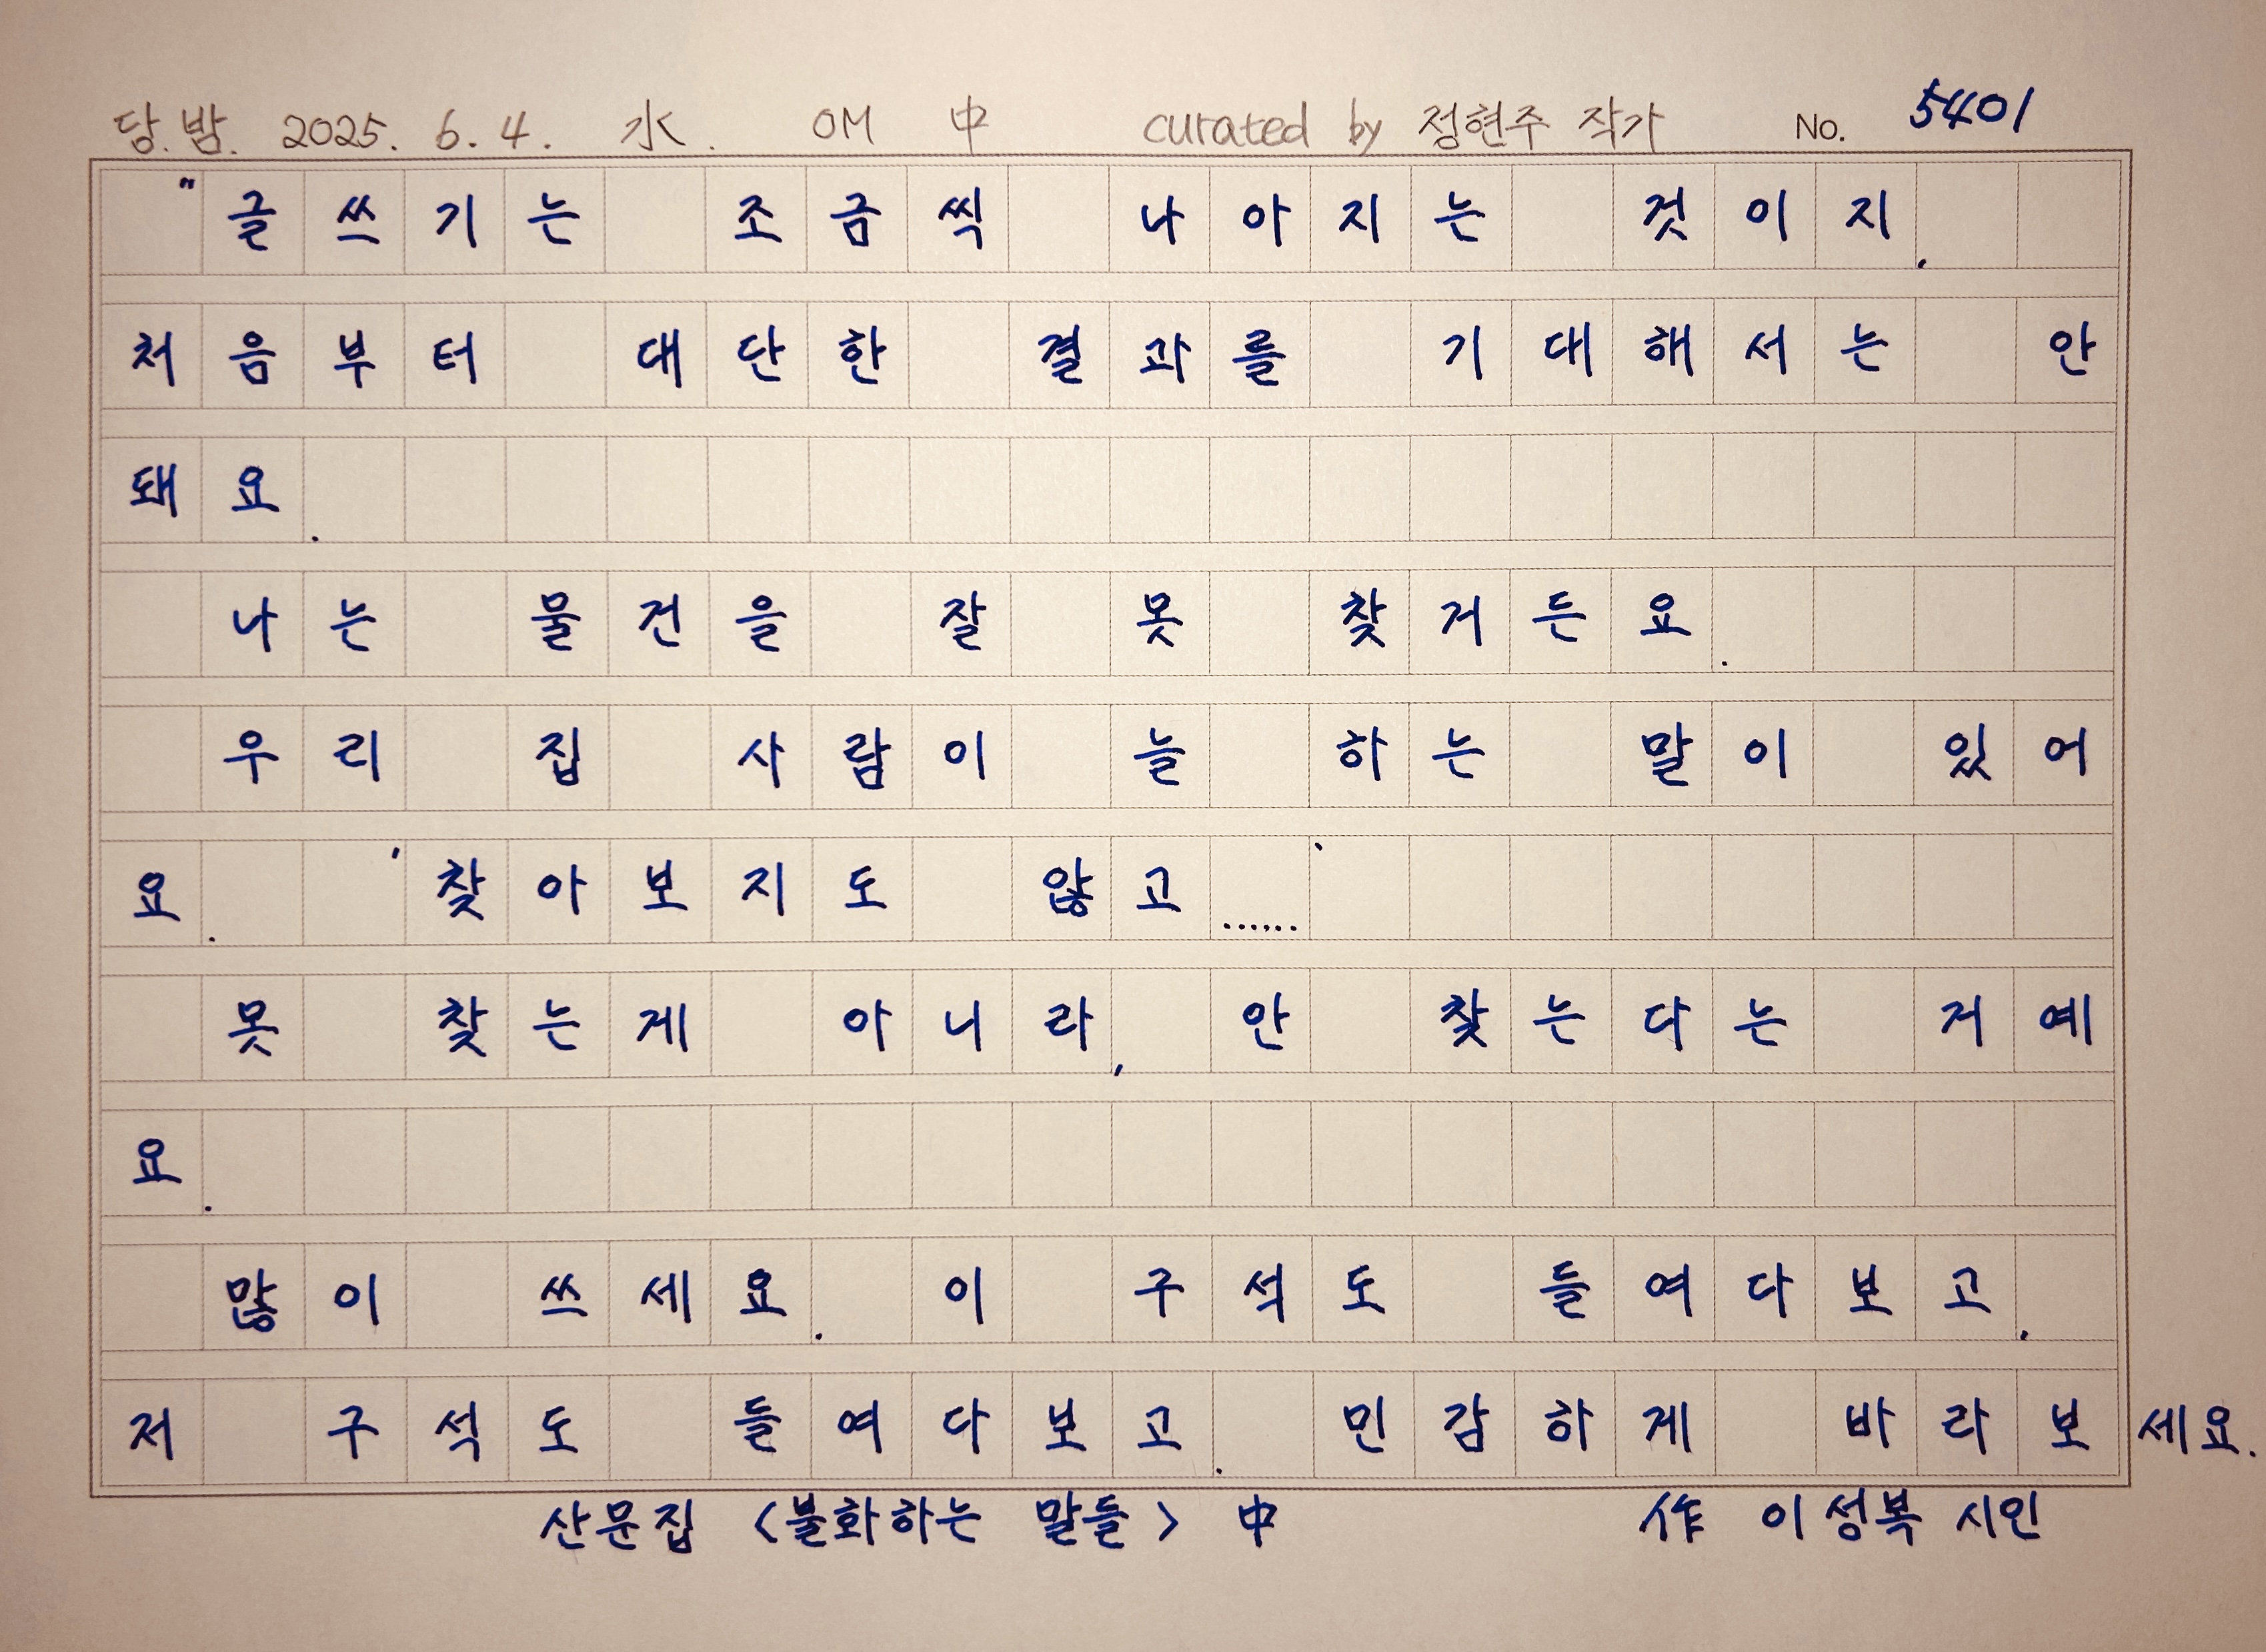 당.밤. 2025. 6. 4. 水. OM 中 curated by 정현주 작가 No. 5401
"글쓰기는 조금씩 나아지는 것이지,
처음부터 대단한 결과를 기대해서는 안
돼요.
나는 물건을 잘 못 찾거든요.
우리 집 사람이 늘 하는 말이 있어
요. '찾아보지도 않고……'
못 찾는게 아니라, 안 찾는다는 거예
요.
많이 쓰세요. 이 구석도 들여다보고,
저 구석도 들여다보고. 민감하게 바라보세요.
산문집 <불화하는 말들> 中 作 이성복 시인